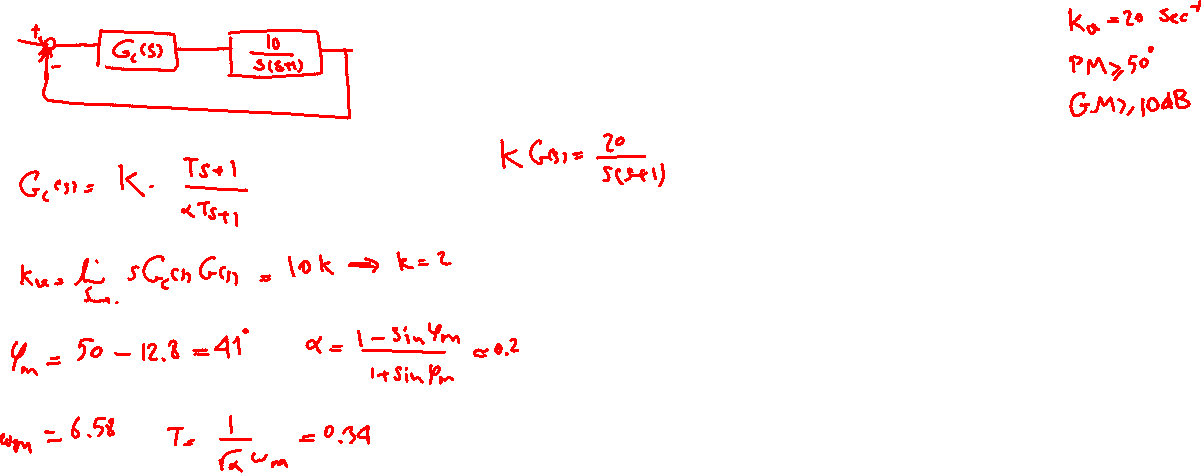 +
-
G_c(s)
10 / s(s+1)
K_v = 20 sec^-1
PM ≥ 50°
GM ≥ 10dB
K G(s) = 20 / s(s+1)
G_c(s) = K · Ts+1 / αTs+1
K_v = lim s→0 s G_c(s) G(s) = 10k → k = 2
φ_m = 50 - 12.8 = 41° α = 1 - sin φ_m / 1 + sin φ_m ≈ 0.2
ω_m = 6.58 T = 1 / √α ω_m = 0.34